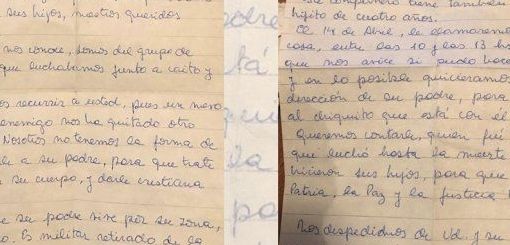 sus hijos, nuestros queridos
nos conoce, somos del grupo de
que luchabamos junto a cacto y
os recurrir a usted, pues un nuevo
enemigo nos ha quitado otro
Nosotros no tenemos la forma de
le a su padre, para que trate
su cuerpo, y darle cristiana
e su padre vive por su zona,
o. Es militar retirado de la
padre
tá
qui
la
po
compañero tiene también
hijito de cuatro años.
El 14 de Abril, le llamaremos
casa, entre las 10 y las 13 hs
que nos avise si pudo hace
y en lo posible quisieramos
dirección de su padre, para
al chiquito que está con él
Queremos contarle, quien fué
que luchó hasta la muerte
hicieron sus hijos, para que
Patria, la Paz y la Justicia
Nos despedimos de Ud. y su